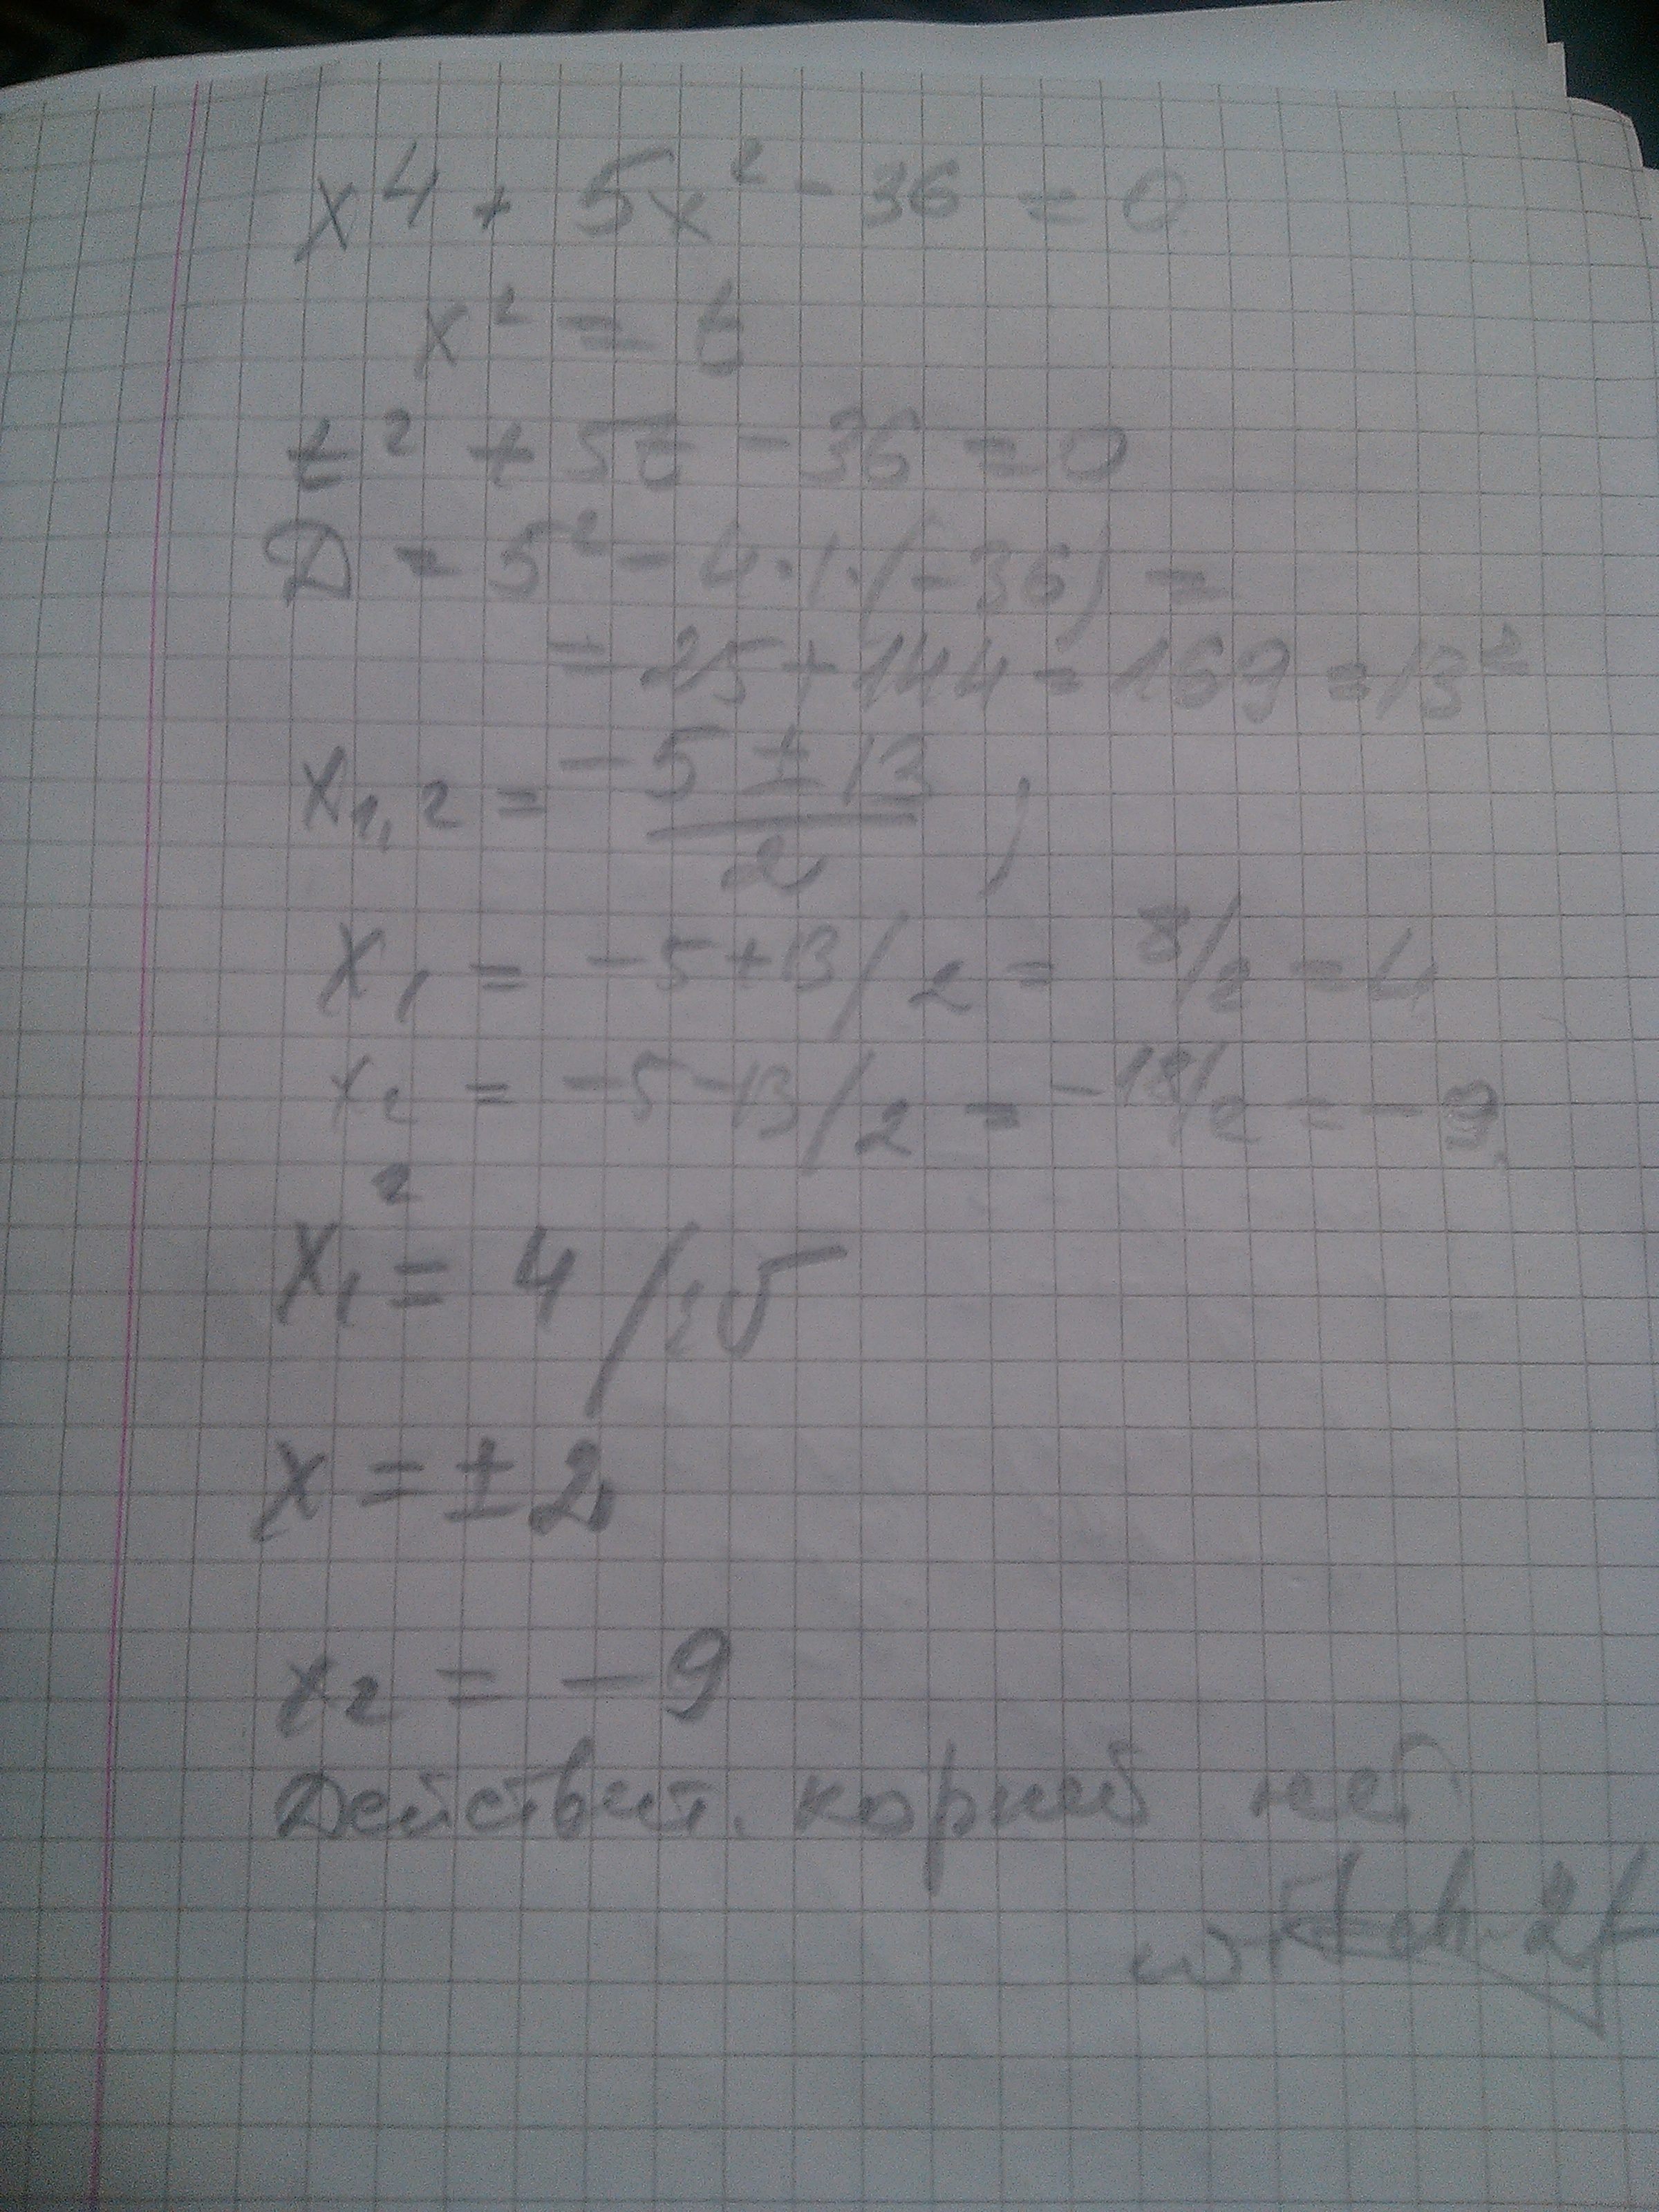 x⁴ + 5x² - 36 = 0
x² = t
t² + 5t - 36 = 0
D = 5² - 4·1·(-36) =
= 25 + 144 = 169 = 13²
x₁,₂ = (-5 ± 13)/2 ;
x₁ = -5+13/2 = 8/2 = 4
x₂ = -5-13/2 = -18/2 = -9.
x₁² = 4 / √
x = ±2
x₂ = -9
Действит. корней нет